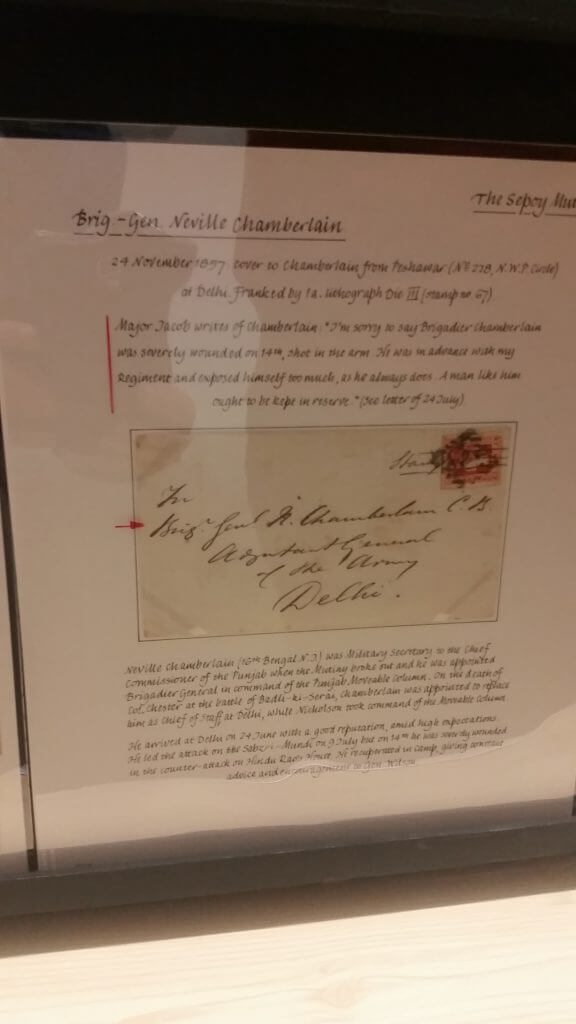 The Sepoy Mut
Brig.-Gen. Neville Chamberlain
24 November 1857 cover to Chamberlain from Peshawar (No 228, N.W.P. Circle)
at Delhi. Franked by 1a. lithograph Die III (stamp no. 67).
Major Jacob writes of Chamberlain: "I'm sorry to say Brigadier Chamberlain
was severely wounded on 14th, shot in the arm. He was in advance with my
Regiment and exposed himself too much, as he always does. A man like him
ought to be kept in reserve." (See letter of 24 July)
To
Brigr. Genl N. Chamberlain C.B.
Adjutant General
of the Army
Delhi.
Neville Chamberlain (16th Bengal N.I.) was Military Secretary to the Chief
Commissioner of the Punjab when the Mutiny broke out and he was appointed
Brigadier General in command of the Punjab Moveable Column. On the death of
Col. Chester at the battle of Badli-ki-Serai, Chamberlain was appointed to replace
him as Chief of Staff at Delhi, while Nicholson took command of the Moveable Column.
He arrived at Delhi on 24 June with a good reputation, amid high expectations.
He led the attack on the Sabzi-Mundi on 9 July but on 14th he was severely wounded
in the counter-attack on Hindu Rao's House. He recuperated in camp, giving constant
advice and encouragement to Gen. Wilson